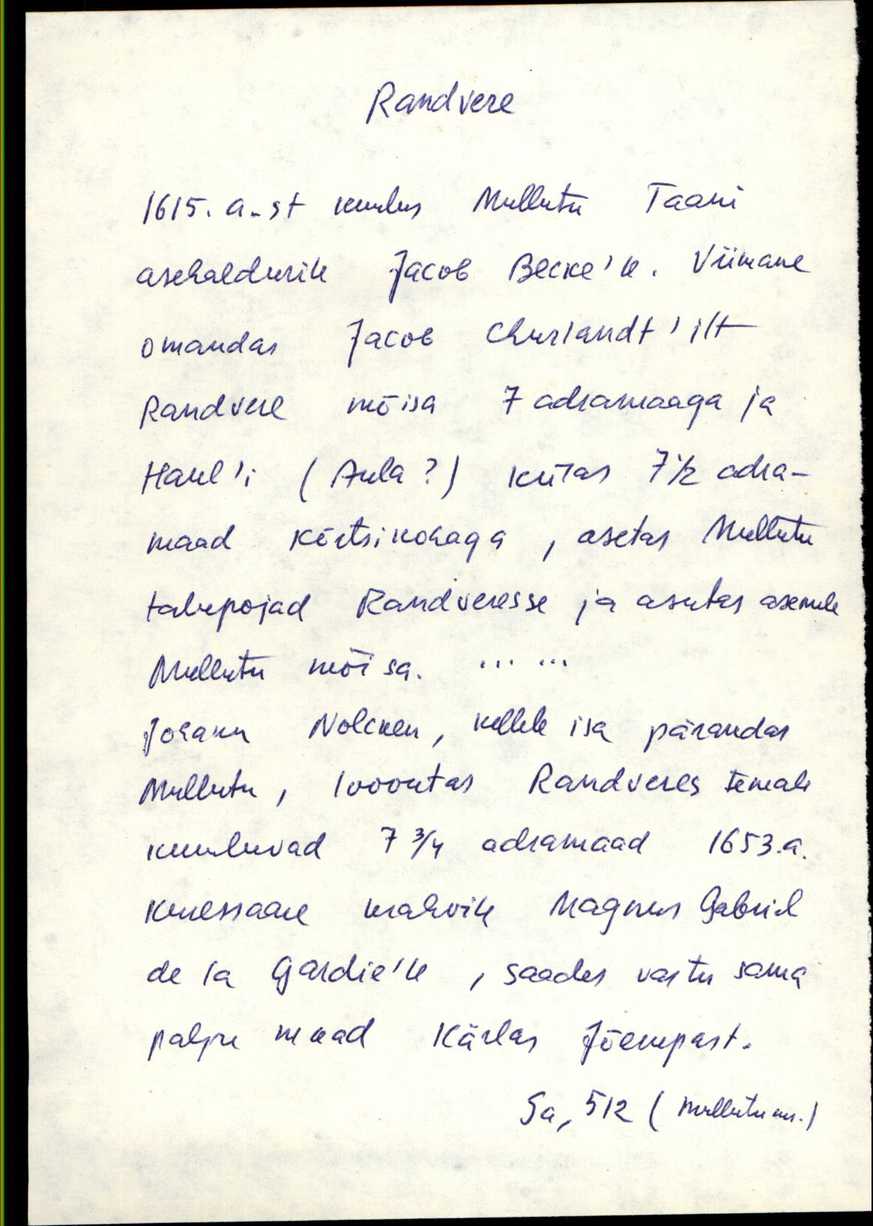 Randvere
1615. a-st kuulus Mullutu Taani
asehaldurile Jacob Becke'le. Viimane
omandas Jacob Churlandt'ilt
Randvere mõisa 7 adramaaga ja
Haul'i (Aula?) külas 7 1/2 adra-
maad kõrtsikohaga, asetas Mullutu
talupojad Randveresse ja asutas asemele
Mullutu mõisa. ... ...
Johann Nolcken, kellele isa pärandas
Mullutu, loovutas Randveres temale
kuuluvad 7 3/4 adramaad 1653.a.
Kuressaare krahvile Magnus Gabriel
de la Gardie'le, saades vastu sama
palju maad Kärlas Jõempast.
Sa, 512 (Mullutu m.)